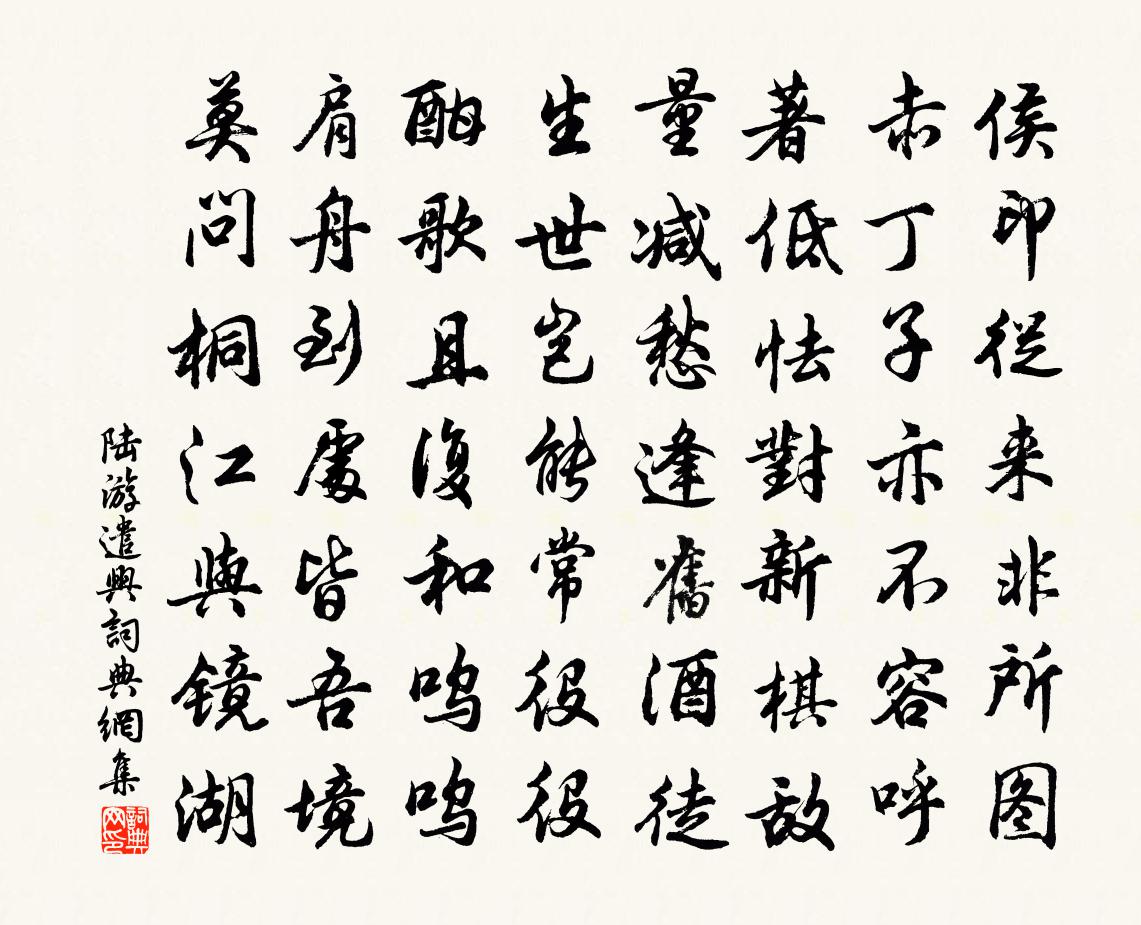 侯印従来非所图
赤丁子亦不容呼
著低怯對新棋敌
量减愁逢舊酒徒
生世岂能常役役
酣歌且復和呜呜
肩舟到處皆吾境
莫问桐江與镜湖
陆游遣興詞典網集
詞典网印